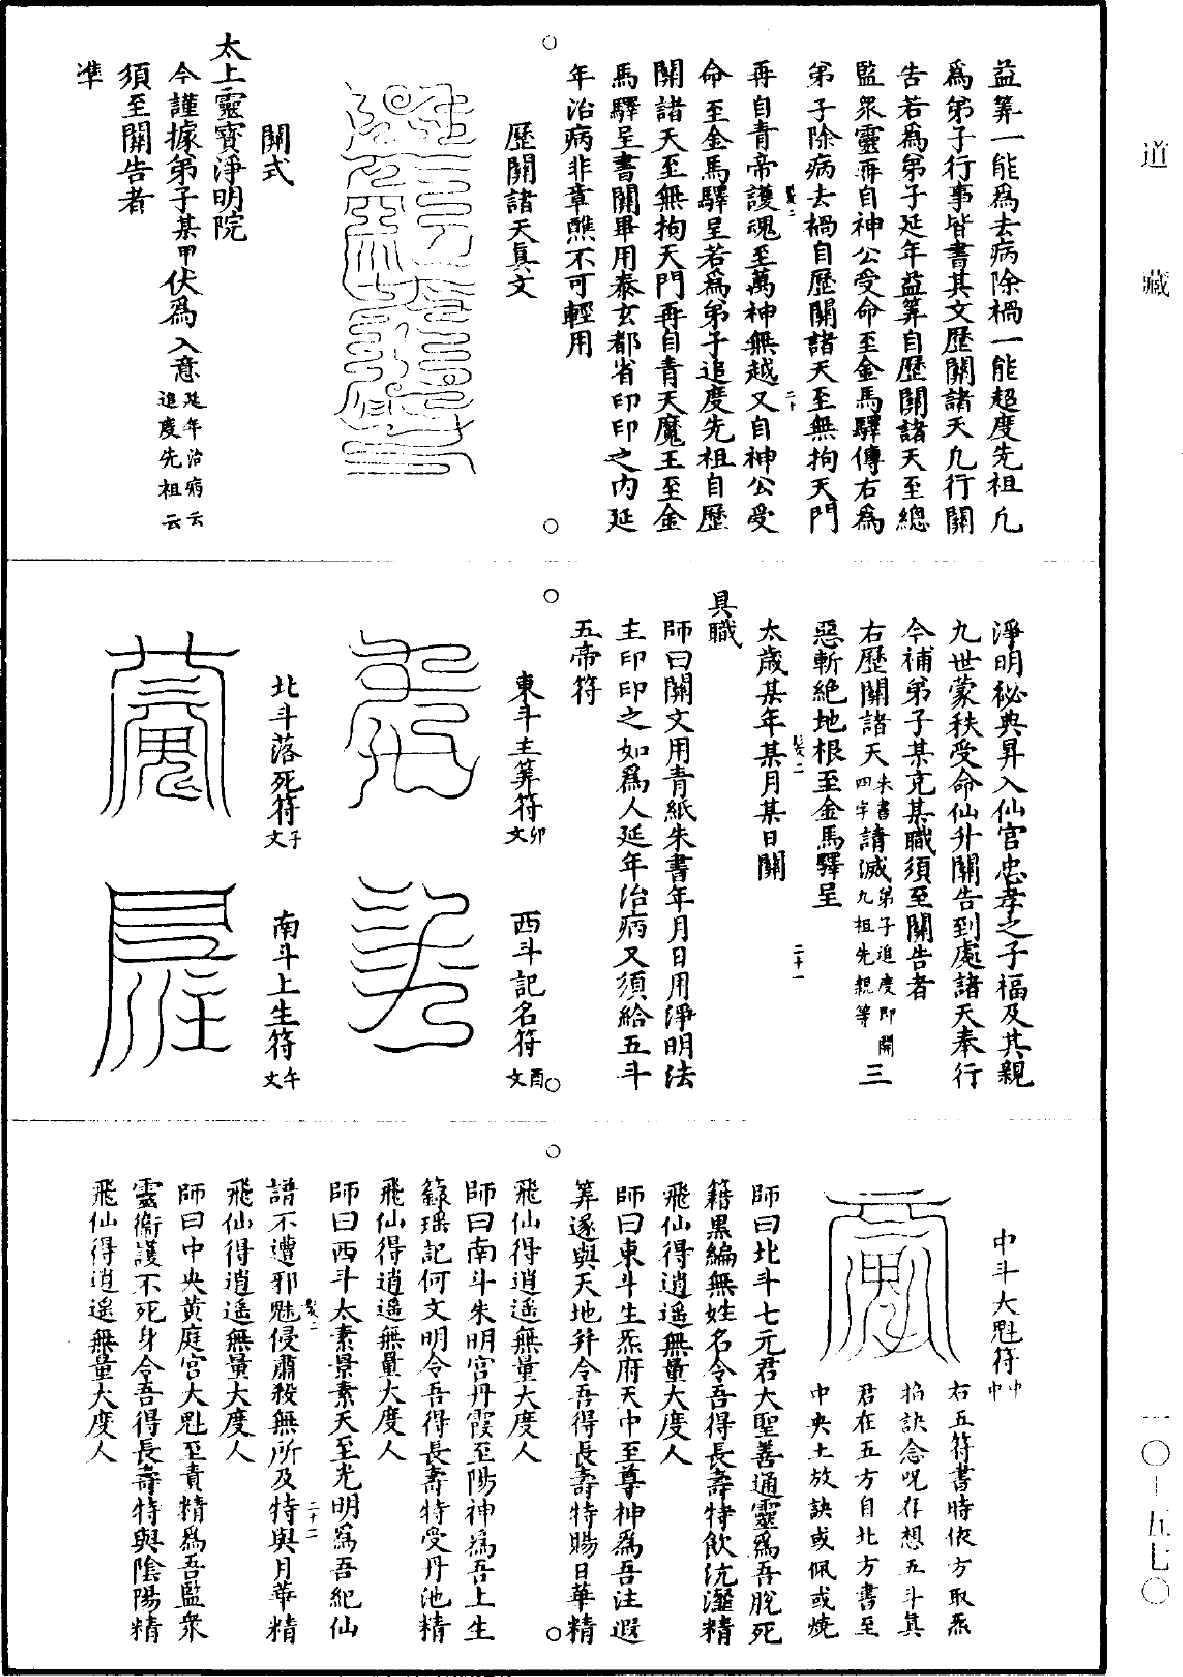 道藏
益筭一能爲去病除禍一能超度先祖凡
爲弟子行事皆書其文歷關諸天凡行關
告若爲弟子延年益筭自歷關諸天至總
監衆靈再自神公受命至金馬驛傳右爲
弟子除病去禍自歷關諸天至無拘天門
再自青帝護魂至萬神無越又自神公受
二十
命至金馬驛呈若爲弟子追度先祖自歷
關諸天至無拘天門再自青天魔王至金
馬驛呈書關畢用泰玄都省印印之内延
年治病非章醮不可輕用
歷關諸天真文
關式
太上靈寶淨明院
今謹據弟子某甲伏爲入意延年治病云
追度先祖云
須至關告者
準
淨明祕典昇入仙官忠孝之子福及其親
九世蒙秩受命仙升關告到處諸天奉行
今補弟子某克某職須至關告者
右歷關諸天朱書
四字請滅弟子追度即關
九祖先親等三
惡斬絶地根至金馬驛呈
二十一
太歲某年某月某日關
具職
師曰關文用青紙朱書年月日用淨明法
主印印之如爲人延年治病又須給五斗
五帝符
東斗主筭符卯文
西斗記名符酉文
北斗落死符子文
南斗上生符午文
中斗大魁符中中
右五符書時依方取炁
掐訣念呪存想五斗真
君在五方自北方書至
中央土放訣或佩或燒
師曰北斗七元君大聖善通靈爲吾脫死
籍黑編無姓名令吾得長壽特飲沆瀣精
飛仙得逍遥無量大度人
師曰東斗生炁府天中至尊神爲吾注遐
筭遂與天地并令吾得長壽特賜日華精
飛仙得逍遥無量大度人
師曰南斗朱明宫丹霞至陽神爲吾上生
籙瑶記何文明令吾得長壽特受丹池精
飛仙得逍遥無量大度人
師曰西斗太素景素天至光明爲吾紀仙
二十二
譜不遭邪魅侵肅殺無所及特與月華精
飛仙得逍遥無量大度人
師曰中央黄庭宫大魁至貴精爲吾監衆
靈衛護不死身令吾得長壽特與陰陽精
飛仙得逍遥無量大度人
一〇—五七〇